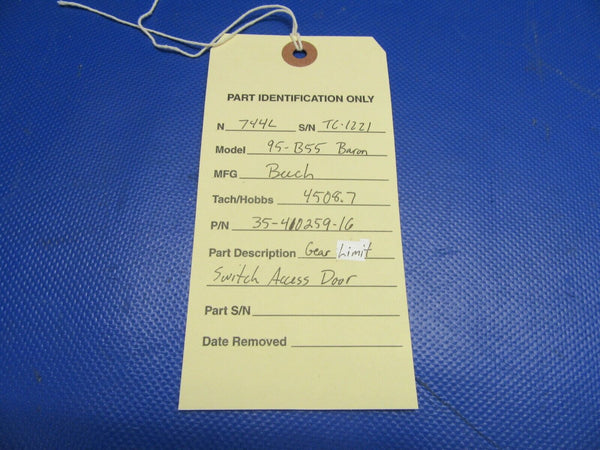 PART IDENTIFICATION ONLY
N 744L S/N TC-1221
Model 95-B55 Baron
MFG Beech
Tach/Hobbs 4508.7
P/N 35-410259-16
Part Description Gear Limit
Switch Access Door
Part S/N
Date Removed